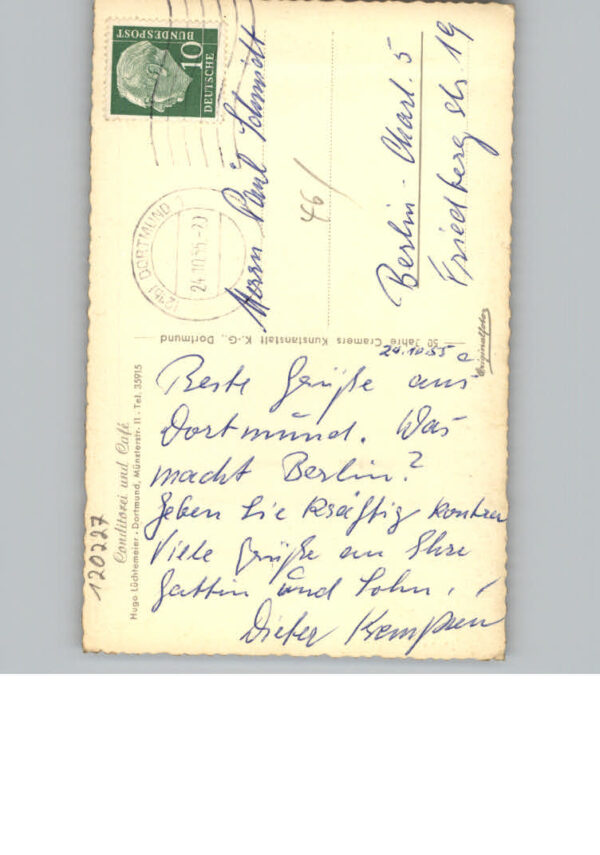 10
DEUTSCHE
BUNDESPOST
DORTMUND
24.10.55-20
Herrn Paul Schmidt
46/
Berlin - Charl. 5
Friedbergstr 19
50 Jahre Cramers Kunstanstalt K.-G., Dortmund
Originalfoto
Conditorei und Café
Hugo Lüchtemeier · Dortmund, Münsterstr. 11 · Tel. 35915
120227
24.10.55
Beste Grüße aus
Dortmund. Was
macht Berlin?
Geben Sie kräftig kontra
Viele Grüße an Ihre
Gattin und Sohn.
Dieter